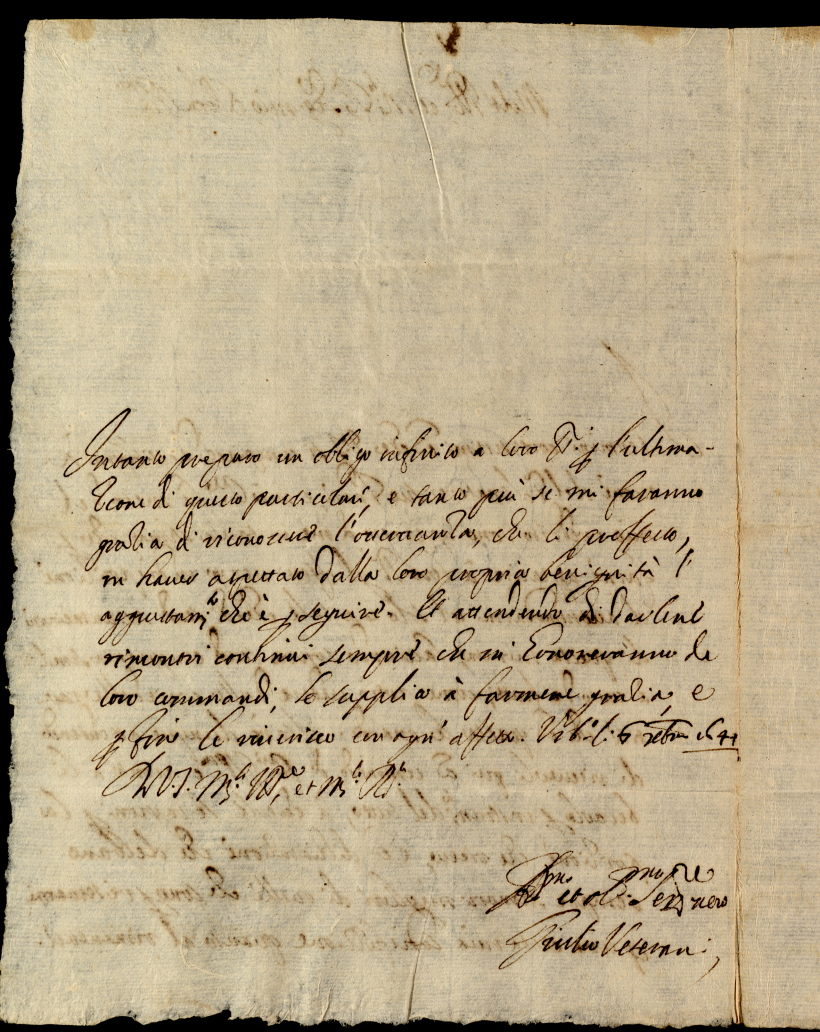 Intanto preparo un obligo infinito a loro SS.ri p l'ultima-
tione di questo particolare, e tanto più se mi faranno
gratia di riconoscere l'osservanza, che li professo,
in haver aspettato dalla loro propria benignità l'
aggiustam.to che è p seguire. Et attendendo di darlene
rincontri continui sempre che mi honoreranno de
loro commandi, le supplico à farmene gratia, e
p fine le riverisco con ogni affetto. Urb.o li 6
D VV. SS. M.to Ill.ri, et M.to R.di
et obl.mo Ser.re vero
Giulio Veterani